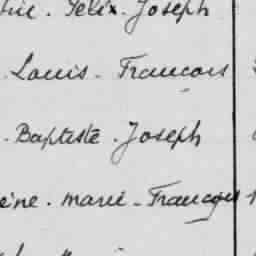 Félix. Joseph
. Louis - Francois
- Baptiste . Joseph
eine. marie - Francoise